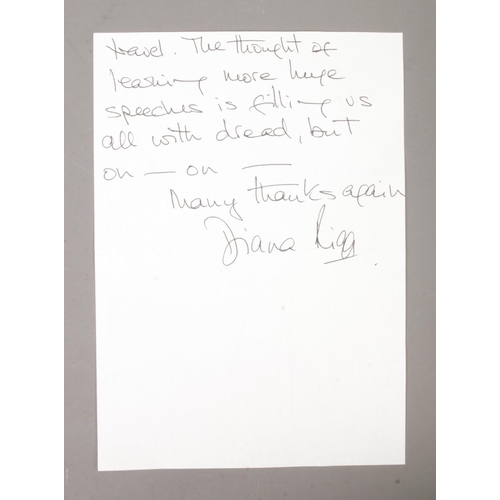 travel. The thought of
learning more huge
speeches is filling us
all with dread, but
on — on —
Many thanks again
Diana Rigg.